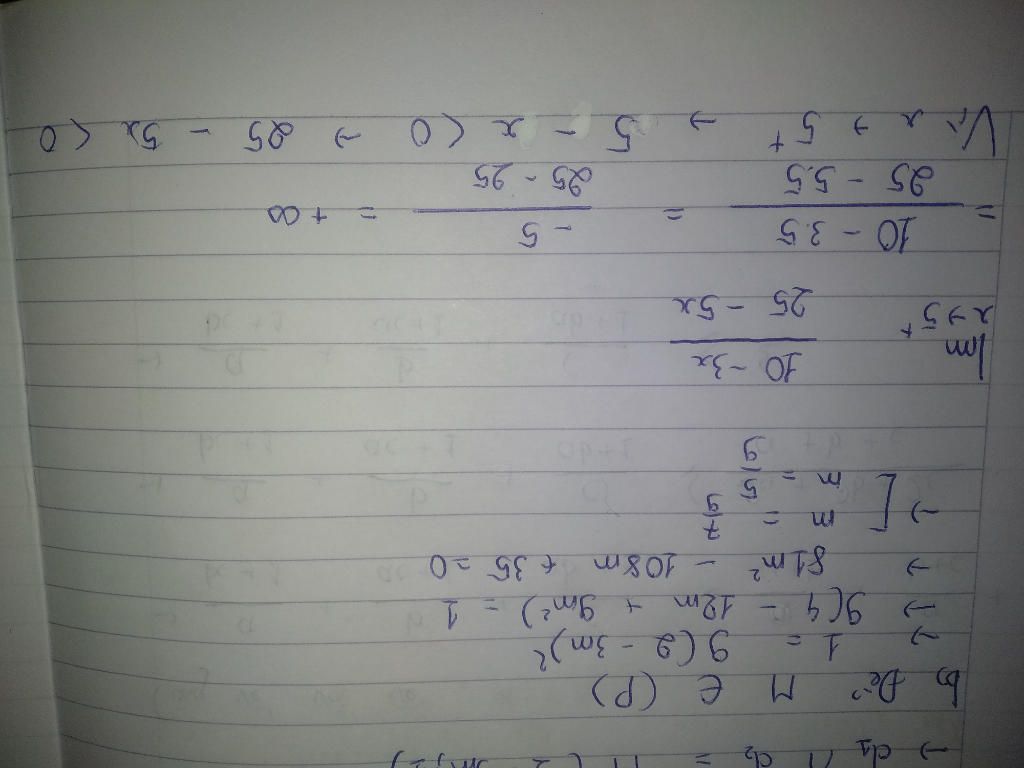 → d₁ ∩ d₂ = M (2 - 3m, 1)
b, Để M ∈ (P)
→ 1 = 9(2 - 3m)²
→ 9(4 - 12m + 9m²) = 1
→ 81m² - 108m + 35 = 0
→ [ m = 7/9
m = 5/9
lim x→5⁺ (10 - 3x)/(25 - 5x)
= (10 - 3.5)/(25 - 5.5) = (-5)/(25 - 25) = +∞
Vì x → 5⁺ → 5 - x < 0 → 25 - 5x < 0